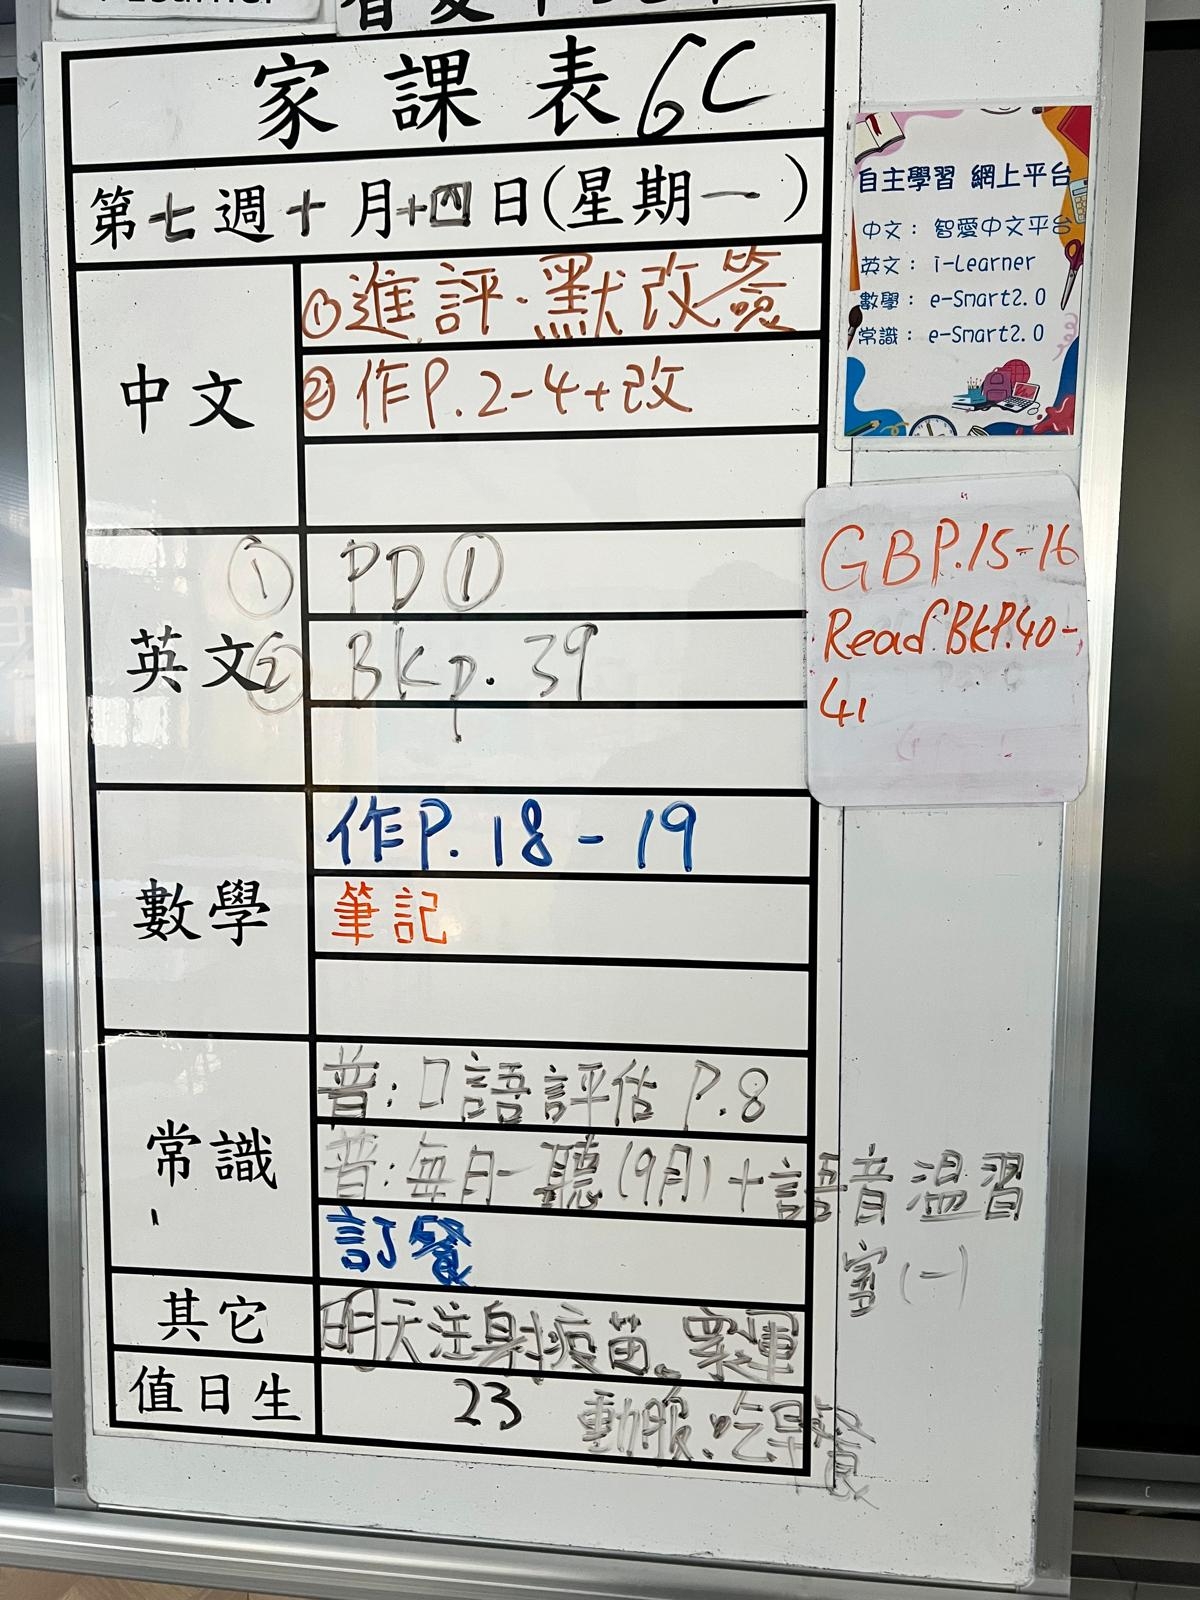 家課表 6C
第七週十月十四日(星期一)
中文
①進評.默改簽
②作P.2-4+改
英文
① PD①
② BKp.39
GBP.15-16
Read BKP.40-
41
數學
作P.18-19
筆記
常識
普:口語評估 P.8
普:每月一聽(9月)+語音溫習
(一)
訂餐
其它
明天注射疫苗。穿運
動服.吃早餐
值日生
23
自主學習 網上平台
中文: 智愛中文平台
英文: i-Learner
數學: e-Smart2.0
常識: e-Smart2.0